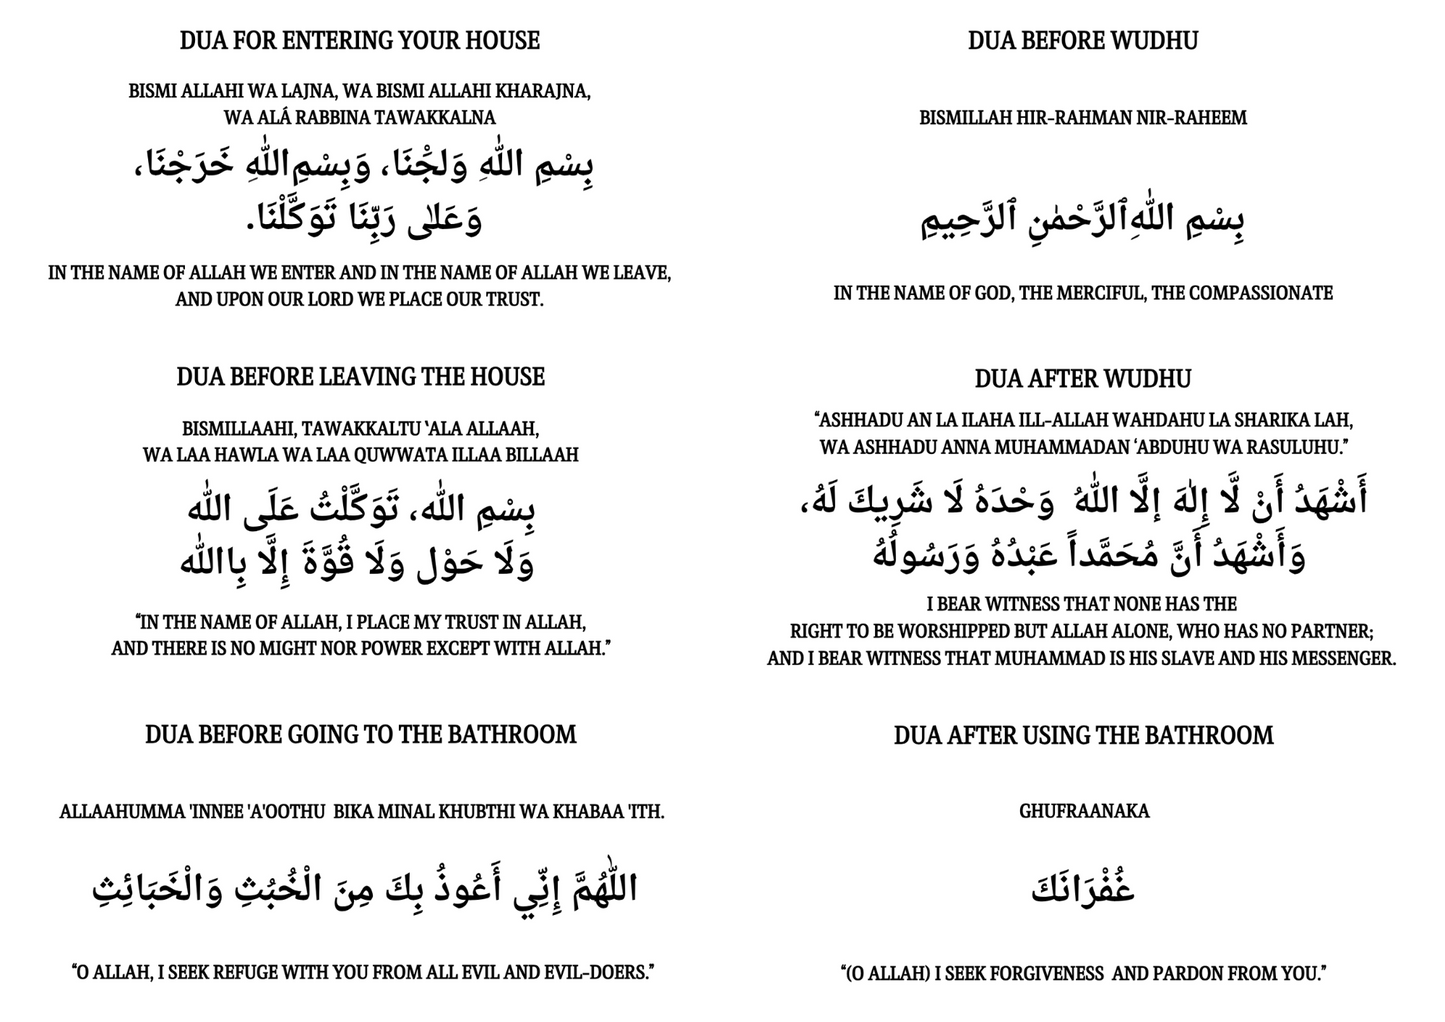 DUA FOR ENTERING YOUR HOUSE
BISMI ALLAHI WA LAJNA, WA BISMI ALLAHI KHARAJNA,
WA ALÁ RABBINA TAWAKKALNA
بِسْمِ اللّٰهِ وَلَجْنَا، وَبِسْمِ اللّٰهِ خَرَجْنَا،
وَعَلىٰ رَبِّنَا تَوَكَّلْنَا.
IN THE NAME OF ALLAH WE ENTER AND IN THE NAME OF ALLAH WE LEAVE,
AND UPON OUR LORD WE PLACE OUR TRUST.
DUA BEFORE LEAVING THE HOUSE
BISMILLAAHI, TAWAKKALTU ‛ALA ALLAAH,
WA LAA HAWLA WA LAA QUWWATA ILLAA BILLAAH
بِسْمِ اللّٰه، تَوَكَّلْتُ عَلَى اللّٰه
وَلَا حَوْل وَلَا قُوَّةَ إِلَّا بِااللّٰه
“IN THE NAME OF ALLAH, I PLACE MY TRUST IN ALLAH,
AND THERE IS NO MIGHT NOR POWER EXCEPT WITH ALLAH.”
DUA BEFORE GOING TO THE BATHROOM
ALLAAHUMMA 'INNEE 'A'OOTHU BIKA MINAL KHUBTHI WA KHABAA 'ITH.
اللّٰهُمَّ إِنِّي أَعُوذُ بِكَ مِنَ الْخُبُثِ وَالْخَبَائِثِ
“O ALLAH, I SEEK REFUGE WITH YOU FROM ALL EVIL AND EVIL-DOERS.”
DUA BEFORE WUDHU
BISMILLAH HIR-RAHMAN NIR-RAHEEM
بِسْمِ اللّٰهِ ٱلرَّحْمٰنِ ٱلرَّحِيمِ
IN THE NAME OF GOD, THE MERCIFUL, THE COMPASSIONATE
DUA AFTER WUDHU
“ASHHADU AN LA ILAHA ILL-ALLAH WAHDAHU LA SHARIKA LAH,
WA ASHHADU ANNA MUHAMMADAN ‘ABDUHU WA RASULUHU.”
أَشْهَدُ أَنْ لَّا إِلٰهَ إلَّا اللّٰهُ وَحْدَهُ لَا شَرِيكَ لَهُ،
وَأَشْهَدُ أَنَّ مُحَمَّداً عَبْدُهُ وَرَسُولُهُ
I BEAR WITNESS THAT NONE HAS THE
RIGHT TO BE WORSHIPPED BUT ALLAH ALONE, WHO HAS NO PARTNER;
AND I BEAR WITNESS THAT MUHAMMAD IS HIS SLAVE AND HIS MESSENGER.
DUA AFTER USING THE BATHROOM
GHUFRAANAKA
غُفْرَانَكَ
“(O ALLAH) I SEEK FORGIVENESS AND PARDON FROM YOU.”